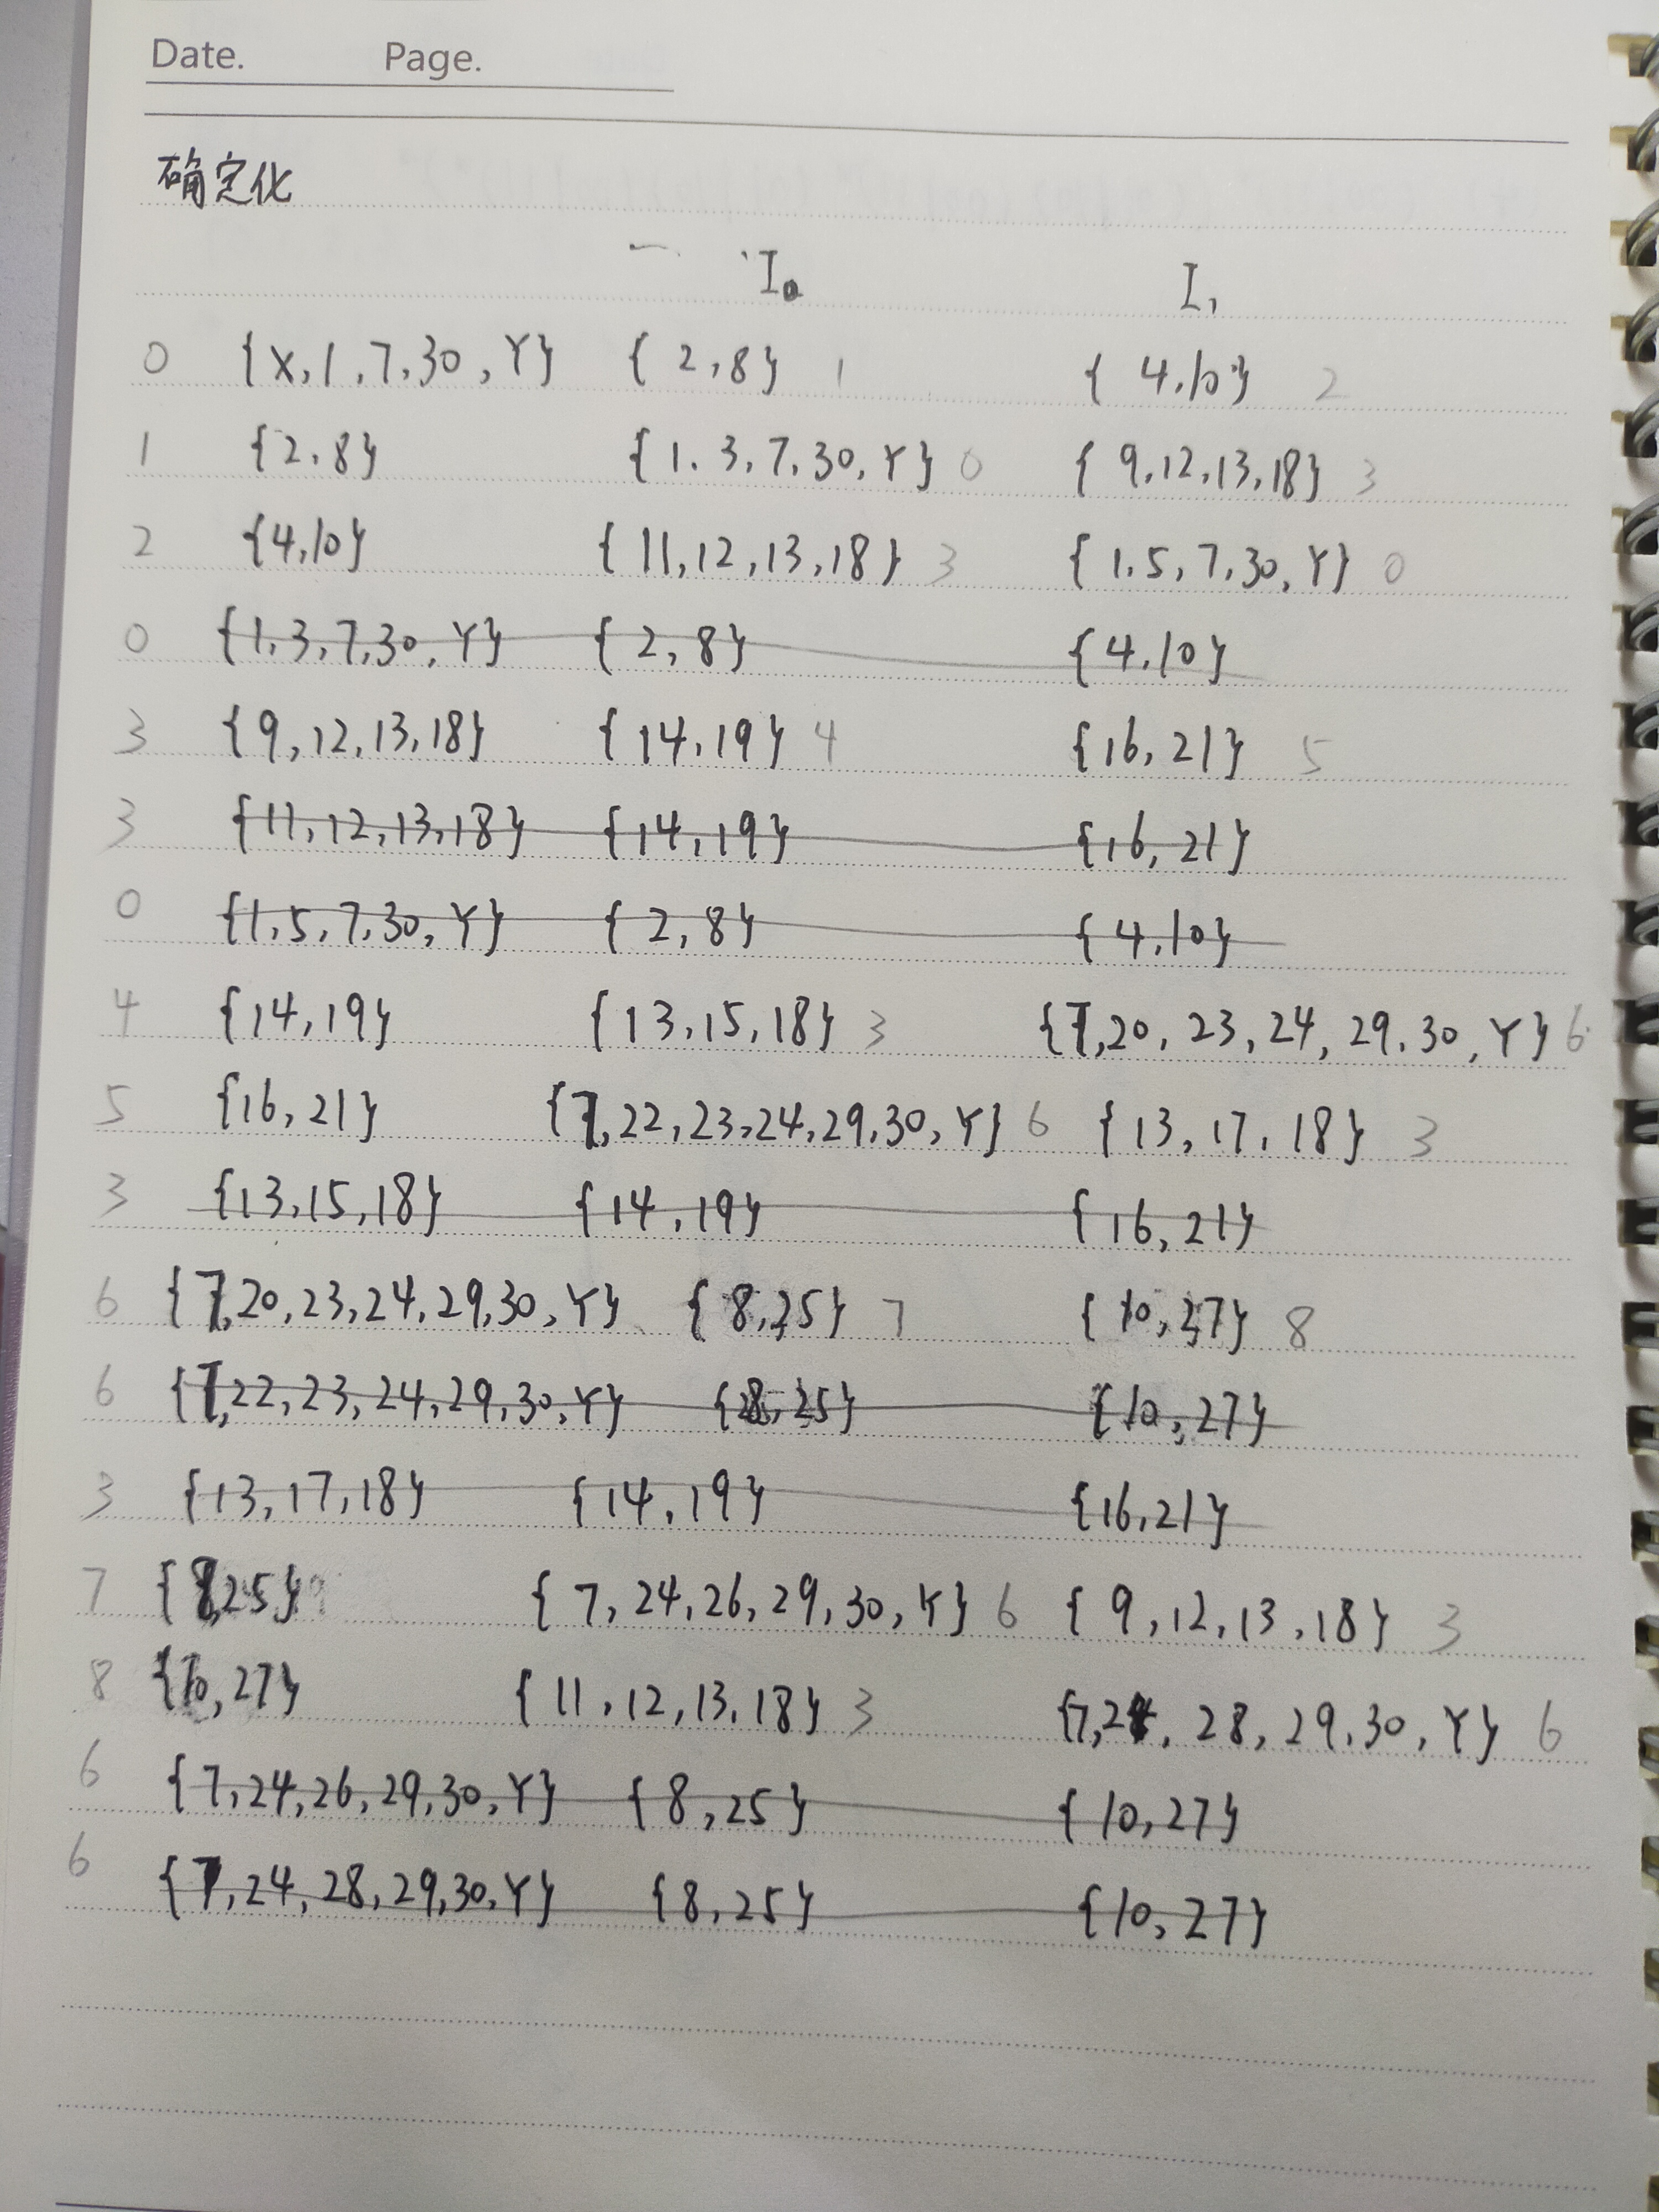 Date. Page.
确定化
I₀ I₁
0 {X,1,7,30,Y} {2,8} 1 {4,10} 2
1 {2,8} {1,3,7,30,Y} 0 {9,12,13,18} 3
2 {4,10} {11,12,13,18} 3 {1,5,7,30,Y} 0
0 {1,3,7,30,Y} {2,8} {4,10}
3 {9,12,13,18} {14,19} 4 {16,21} 5
3 {11,12,13,18} {14,19} {16,21}
0 {1,5,7,30,Y} {2,8} {4,10}
4 {14,19} {13,15,18} 3 {7,20,23,24,29,30,Y} 6
5 {16,21} {7,22,23,24,29,30,Y} 6 {13,17,18} 3
3 {13,15,18} {14,19} {16,21}
6 {7,20,23,24,29,30,Y} {8,25} 7 {10,27} 8
6 {7,22,23,24,29,30,Y} {8,25} {10,27}
3 {13,17,18} {14,19} {16,21}
7 {8,25} {7,24,26,29,30,Y} 6 {9,12,13,18} 3
8 {10,27} {11,12,13,18} 3 {7,24,28,29,30,Y} 6
6 {7,24,26,29,30,Y} {8,25} {10,27}
6 {7,24,28,29,30,Y} {8,25} {10,27}